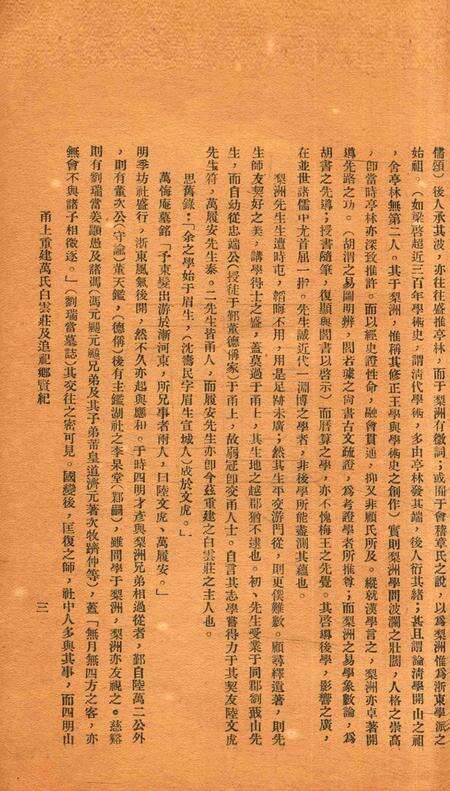 儒顏）後人承其波，亦往往盛推亭林，而于梨洲有微詞；或囿于會稽章氏之說，以為梨洲惟為浙東學派之
始祖。（如梁啓超近三百年學術史，謂清代學術，多由亭林發其端，後人衍其緒；甚且謂論清學開山之祖
，舍亭林無第二人。其于梨洲，惟稱其修正王學與學術史之創作。）實則梨洲學問波瀾之壯闊，人格之崇高
，卽當時亭林亦深致推許。而以經史證性命，融會貫通，抑又非顧氏所及。縱就漢學言之，梨洲亦卓著開
導先路之功。（胡渭之易圖明辨，閻若璩之尙書古文疏證，為考證學者所推尊；而梨洲之易學象數論，為
胡書之先導；授書隨筆，復顯與閻書以啓示）而曆算之學，亦不愧梅王之先覺。其啓導後學，影響之廣，
在並世諸儒中尤首屈一指。先生誠近代一淵博之學者，非後學所能盡測其蘊也。
梨洲先生生遭時屯，韜晦不用，用是足跡未廣；然其生平交游問從，則更僕難數。顧尋繹遺著，則先
生師友契好之美，講學得士之盛，蓋莫過于甬上，其生地之越郡猶不逮也。初、先生受業于同郡劉蕺山先
生，而自幼從忠端公（授徒于鄞董德偁家）于甬上，故弱冠卽交甬人士。自言其志學嘗得力于其契友陸文虎
先生符，萬履安先生泰。二先生皆甬人，而履安先生亦卽今玆重建之白雲莊之主人也。
思舊錄：「余之學始于眉生，（沈壽民字眉生宣城人）成於文虎。」
萬悔庵墓銘「予束髮出游於浙河東，所兄事者兩人，曰陸文虎、萬履安。」
明季坊社盛行，浙東風氣後開，然不久亦起與應和。于時四明才彥與梨洲兄弟相過從者，鄞自陸萬二公外
，則有董次公（守諭）董天鑑，（德偁）後有主鑑湖社之李杲堂（鄴嗣），雖問學于梨洲，梨洲亦友視之。慈谿
則有劉瑞當姜顓愚及諸馮（馮元颺元飈兄弟及其子弟蓽皇道濟元著次牧躋仲等），蓋「無月無四方之客，亦
無會不與諸子相徵逐。」（劉瑞當墓誌）其交往之密可見。國變後，匡復之師，社中人多與其事，而四明山
甬上重建萬氏白雲莊及追祀鄉賢紀
三